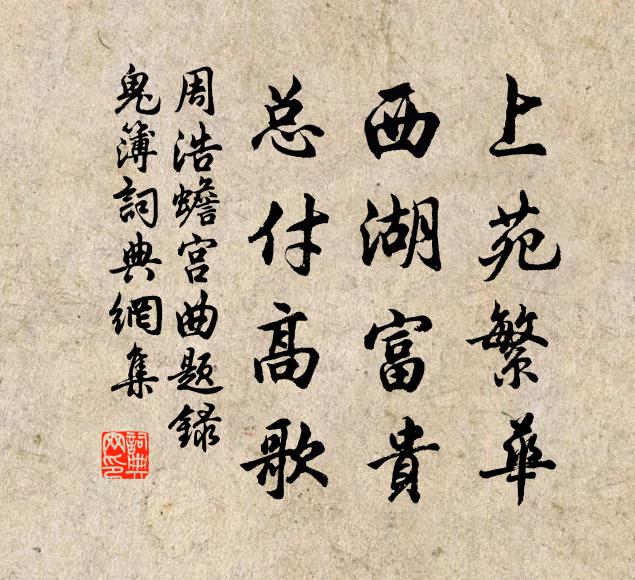 上苑繁華
西湖富貴
总付高歌
周浩蟾宫曲題録
鬼簿詞典網集
詞典网印